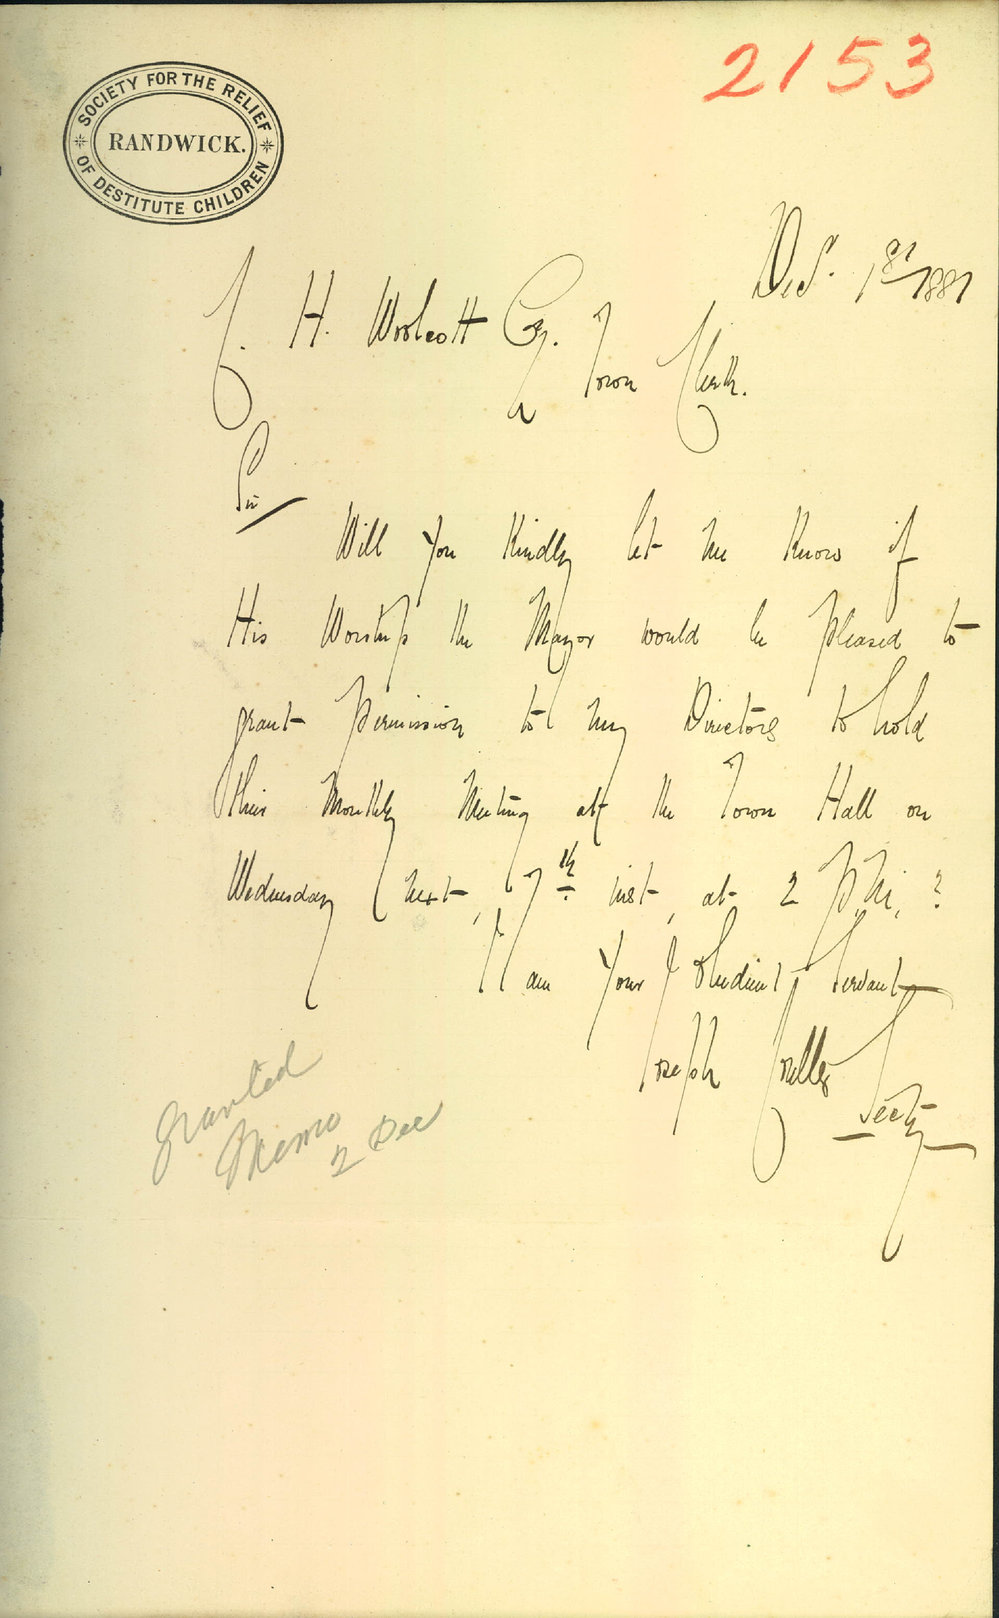 2153
SOCIETY FOR THE RELIEF
RANDWICK.
OF DESTITUTE CHILDREN
Decr. 1st 1881
C. H. Woolcott Esq.
Town Clerk.
Sir
Will you Kindly let me Know if
His Worship the Mayor would be pleased to
grant permission to my Directors to hold
their Monthly Meeting at the Town Hall on
Wednesday next, 7th inst, at 2 P.M.?
I am Your Obedient Servant
Joseph Coulter
Secty
granted
Memo
2 Dec